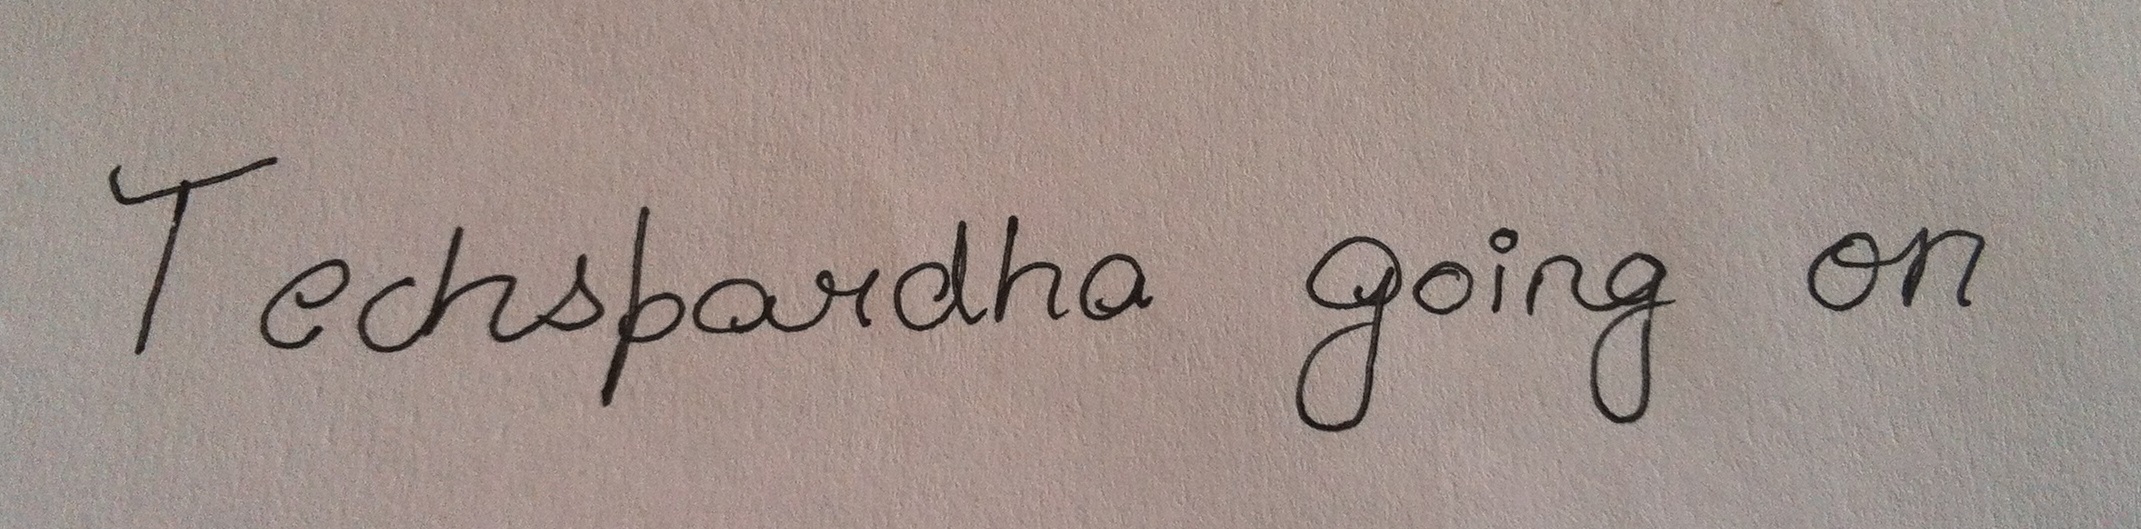 Techspardha going on